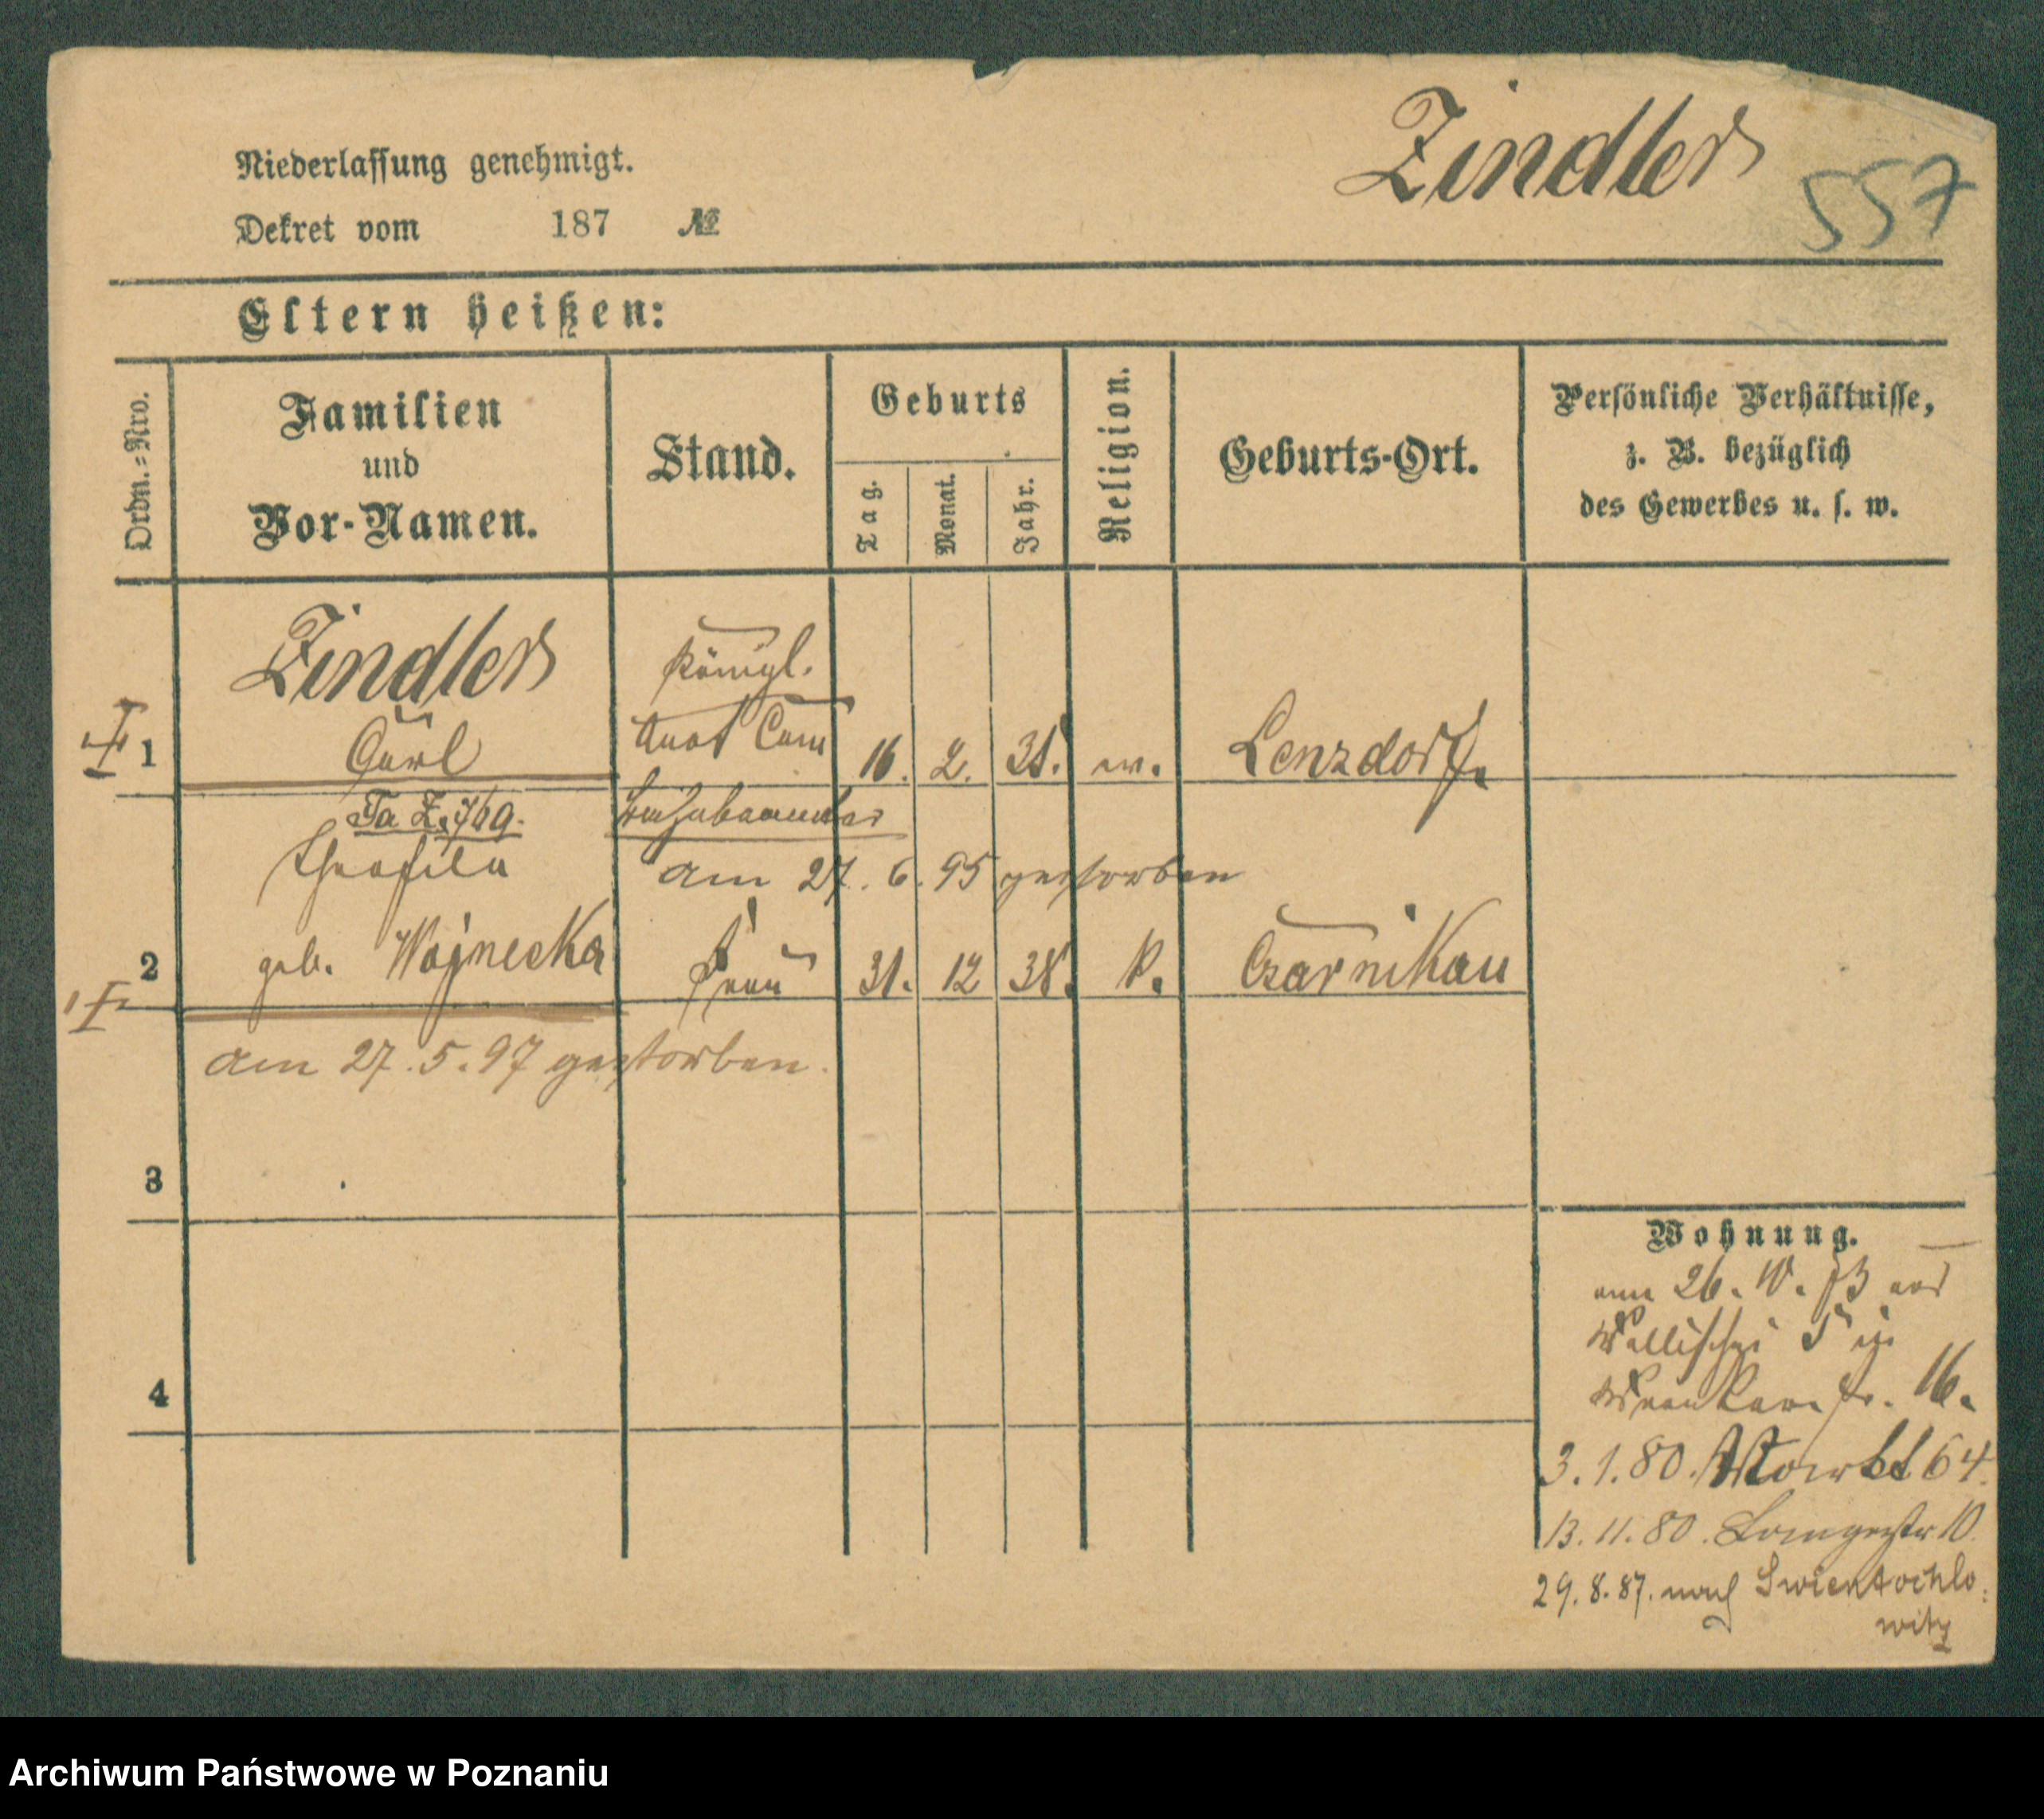 Zindler
557
Niederlassung genehmigt.
Dekret vom 187 №
Eltern heißen:
Ordn.=Nro.
Familien
und
Vor-Namen.
Stand.
Geburts
Tag.
Monat.
Jahr.
Religion.
Geburts-Ort.
Persönliche Verhältnisse,
z. B. bezüglich
des Gewerbes u. s. w.
Zindler
Königl.
1 Carl 16. 2. 31. ev. Lenzdorf.
Theofila
am 27. 6. 95 gestorben
2 geb. Wojnecka Frau 31. 12 38. k. Czarnikau
am 27. 5. 97 gestorben.
3
4
Wohnung.
Wallischei 5 in
16.
3. 1. 80. Markt 64.
13. 11. 80. Langestr 10.
29. 8. 87. nach Swientochlo=
witz
Archiwum Państwowe w Poznaniu